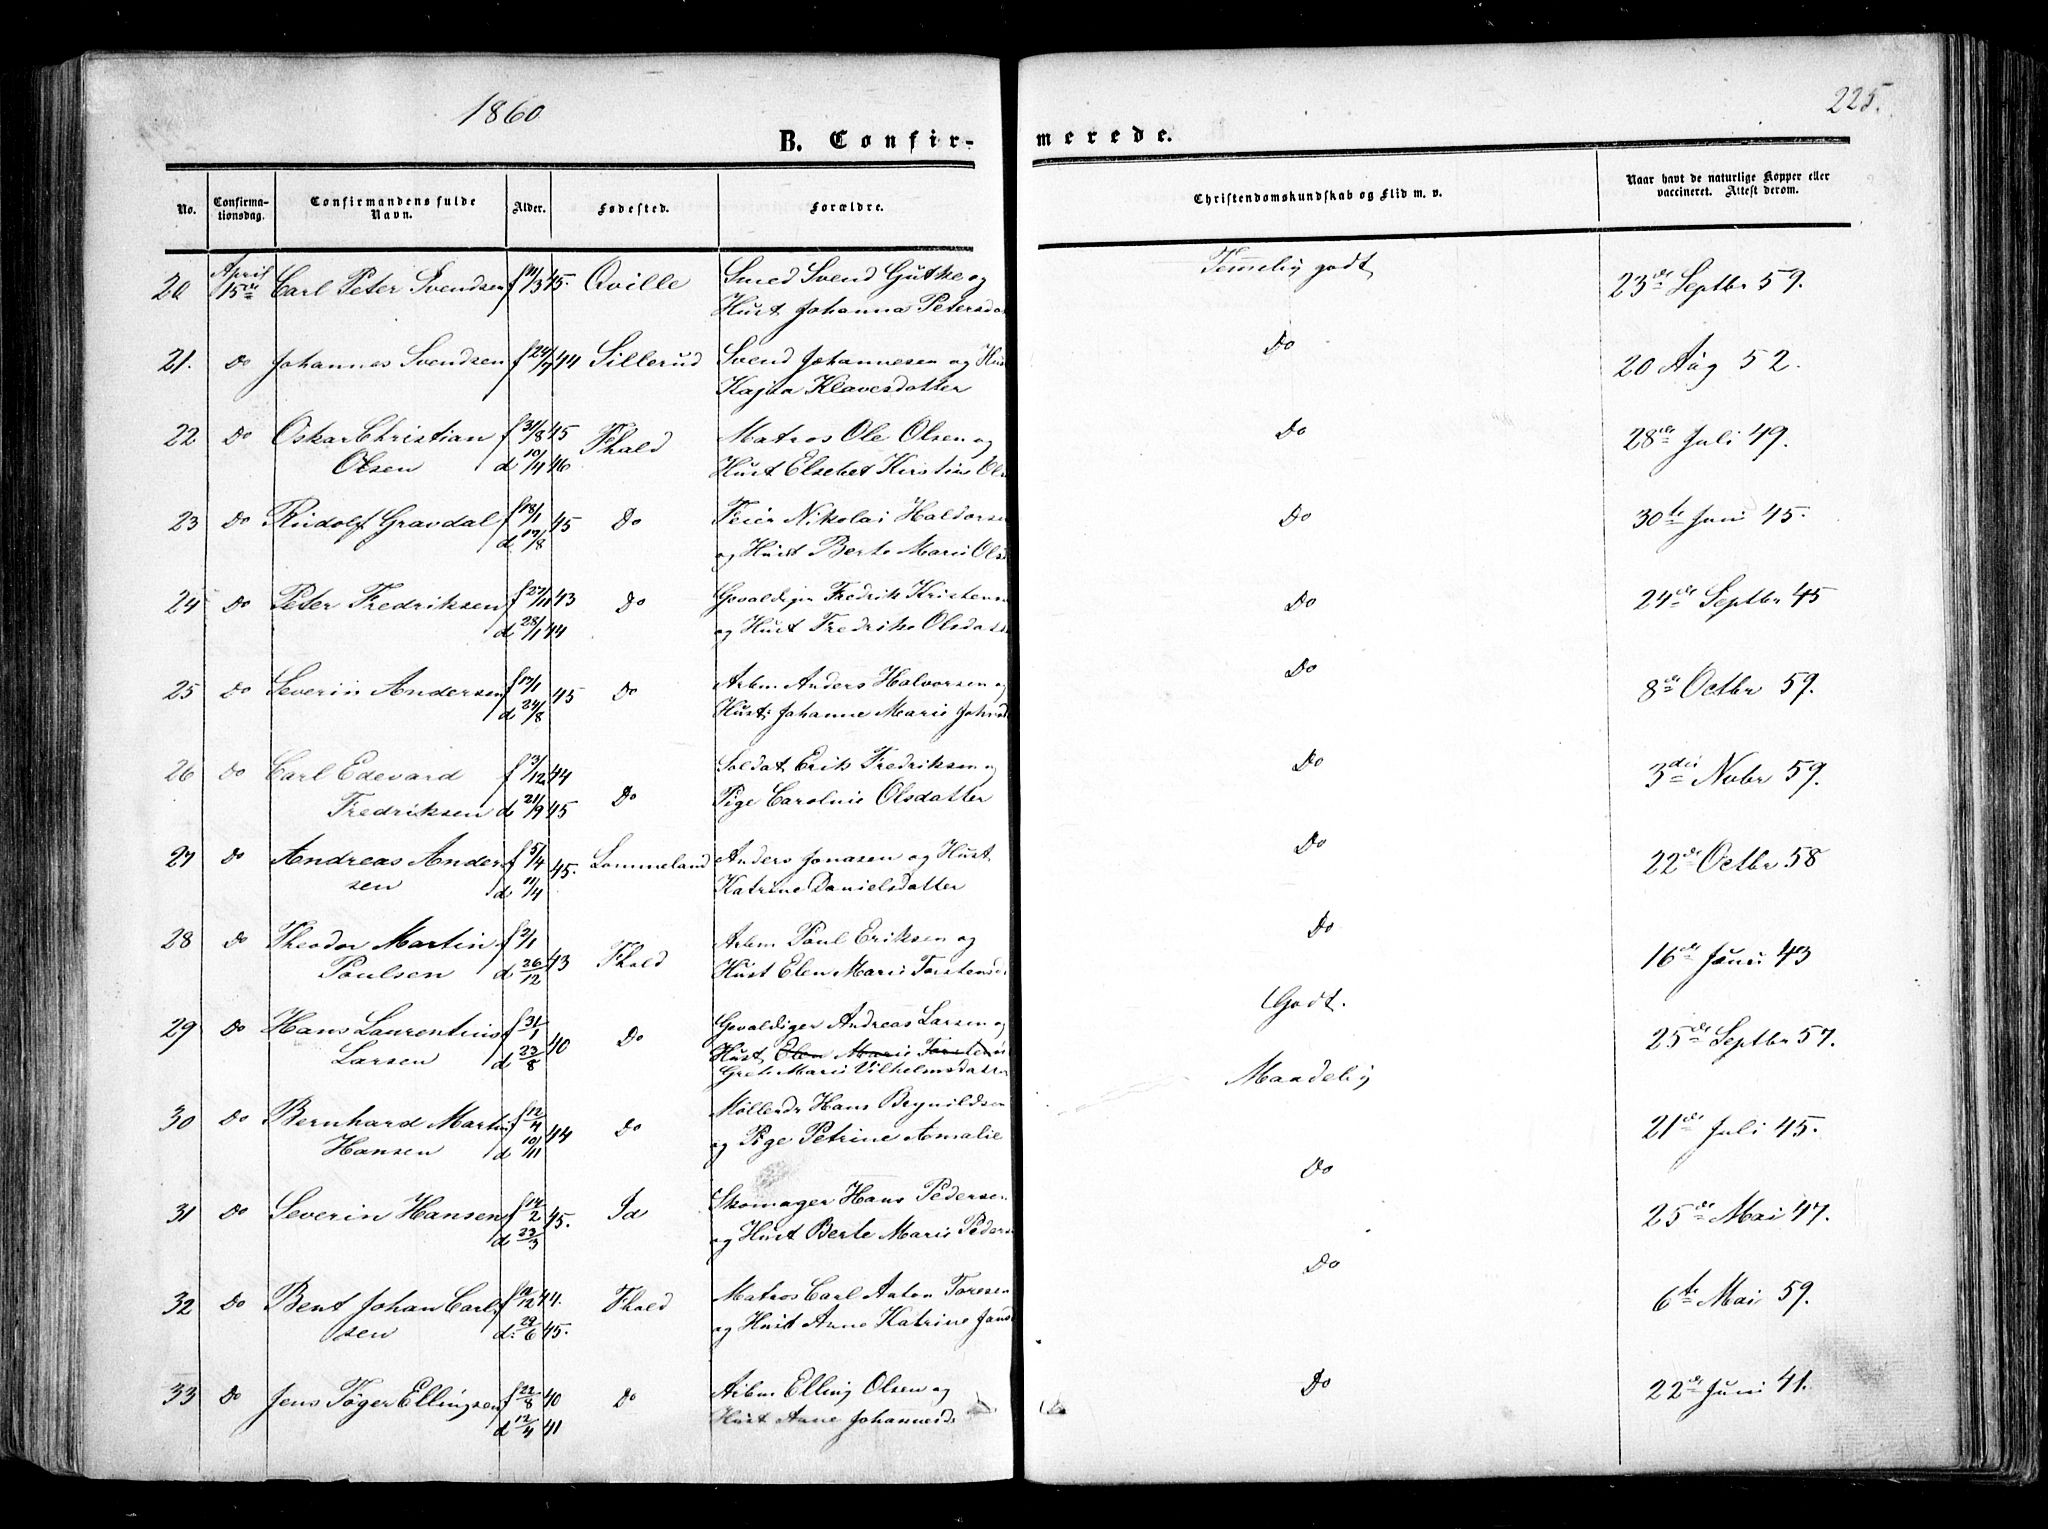 1860
225.
B. Confir-
merede.
No.
Confirma-
tionsdag.
Confirmandens fulde
Navn.
Alder.
Fødested.
Forældre.
Christendomskundskab og Flid m. v.
Naar havt de naturlige Kopper eller
vaccineret. Attest derom.
20 April 15de Carl Peter Svendsen f 11/3 45. Qville Smed Svend Gütke og
Hust Johanna Petersda
Temmelig godt
23de Septbr 59.
21. Do Johannes Svendsen f 24/7 44 Sillerud Svend Johannesen og Hus
Kajsa Klavesdatter
Do
20 Aug 52.
22 Do Oskar Christian f 31/8 45 Fhald Matros Ole Olsen og
Olsen d 10/4 46 Hust Elsebet Kirstine Ols
Do
28de Juli 49.
23 Do Rudolf Gravdal f 18/1 45 Do Feier Nikolai Haldorsen
d 17/8 og Hust Berte Marie Ols
Do
30te Juni 45.
24 Do Peter Fredriksen f 27/11 43 Do Gevaldiger Fredrik Kristens
d 28/1 44 og Hust Fredrike Olsdatt
Do
24de Septbr 45
25 Do Severin Andersen f 17/1 45 Do Arbm Anders Halvorsen og
d 24/8 Hust. Johanne Marie Johnsd
Do
8de Octbr 59.
26 Do Carl Edevard f 3/12 44 Soldat Erik Fredriksen og
Fredriksen d 21/9 45 Do Pige Caroline Olsdatter
Do
3die Nvbr 59.
27 Do Andreas Ander f 5/4 45. Lommeland Anders Jonasen og Hust
sen d 11/4 Katrine Danielsdatter
Do
22de Octbr 58
28 Do Theodor Martin f 2/1 43 Fhald Arbm Poul Eriksen og
Poulsen d 26/12 Hust Elen Marie Torstensd
Do
16de Juni 43
29 Do Hans Laurentius f 31/1 40 Do Gevaldiger Andreas Larsen og
Larsen d 23/8 Hust Elen Marie Torstens
Grete Marie Vilhelmsdatter
Godt.
25de Septbr 57.
30 Do Bernhard Martin f 12/4 44 Do Møllerdr Hans Brynildsen
Hansen d 10/11 og Pige Petrine Amalie
Maadelig
21de Juli 45.
31 Do Severin Hansen f 17/2 45. Id Skomager Hans Pedersen
d 23/3 og Hust Berte Marie Peders
Do
25de Mai 47.
32 Do Bent Johan Carl f 12/12 44. Fhald Matros Carl Anton Toresen
sen d. 29/6 45. og Hust Anne Katrine Jans
Do
6te Mai 59.
33 Do Jens Tøger Ellingsen f 22/8 40 Do Arbm Elling Olsen og
d 12/4 41 Hust Anne Johannesd
Do
22de Juni 41.